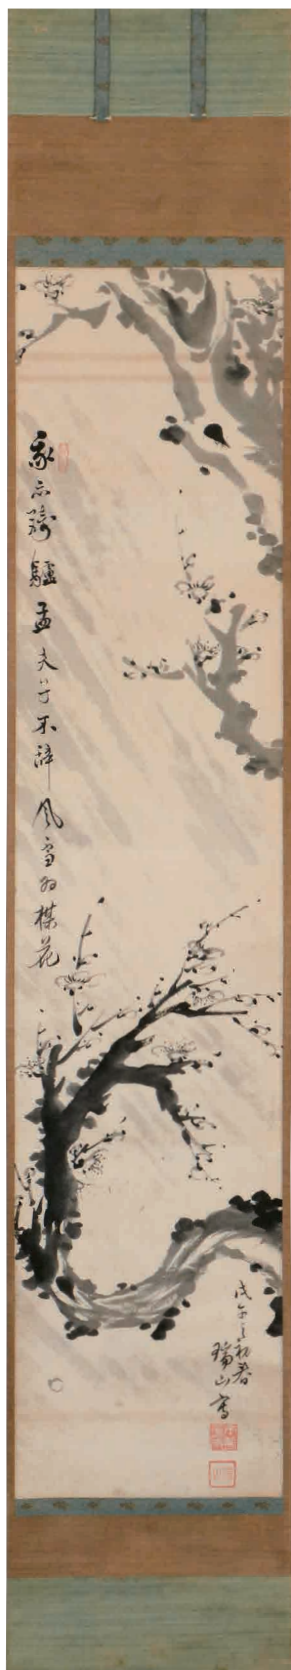 我亦騎驢孟夫子不辭風雪為楳花
戊午之初春
瑞山寫